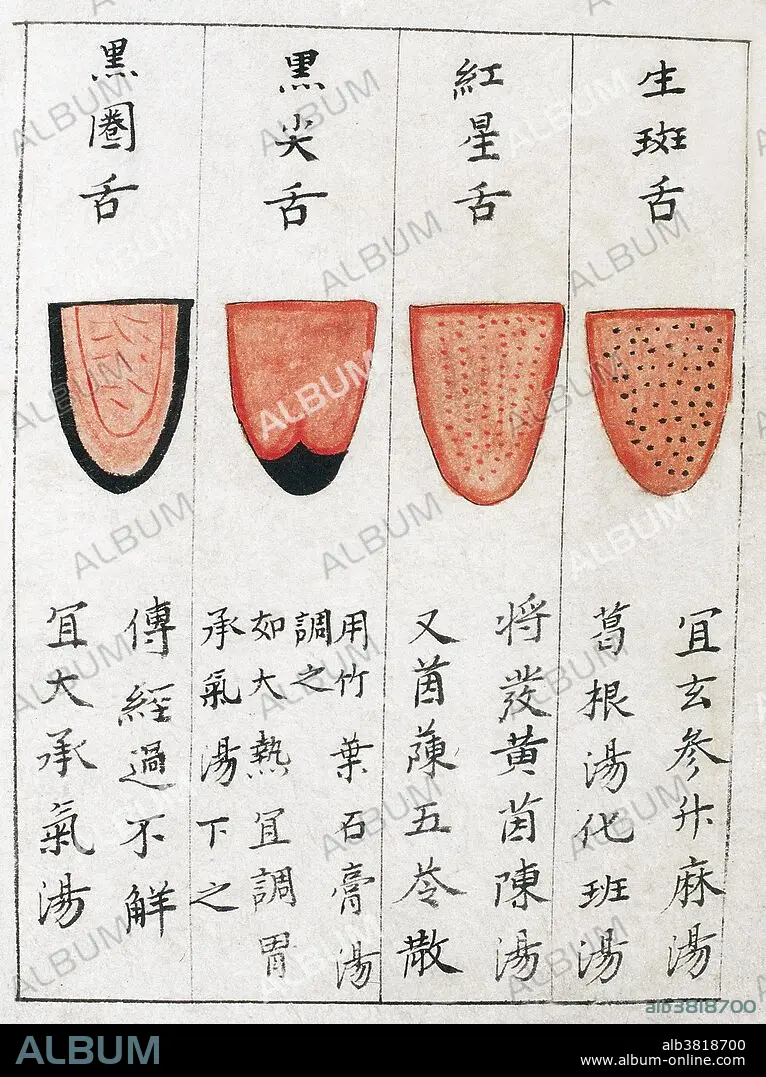 生斑舌
宜玄參升麻湯
葛根湯化班湯
紅星舌
將發黃茵陳湯
又茵蔯五苓散
黒尖舌
用竹葉石膏湯
調之
如大熱宜調胃
承氣湯下之
黒圈舌
傳經過不解
宜大承氣湯
ALBUM
alb3818700
ALBUM
alb3818700
www.album-online.com